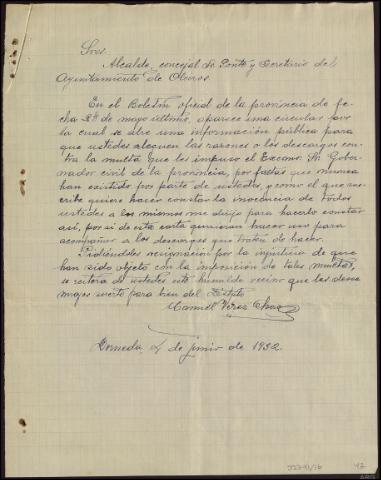 Sres.
Alcalde, concejal de Ponte y Secretario del
Ayuntamiento de Oleiros.
En el Boletin oficial de la provincia de fe-
cha 24 de mayo último, aparece una circular por
la cual se abre una información pública para
que ustedes aleguen las razones o los descargos con-
tra la multa que les impuso el Excmo. Sr. Gober-
nador civil de la provincia, por faltas que nunca
han existido por parte de ustedes, y como el que sus-
cribe quiere hacer constar la inocencia de todos
ustedes a los mismos me dirijo para hacerlo constar
asi, por si de esta carta quisieran hacer uso para
acompañar a los descargos que traten de hacer.
Pidiéndoles resignación por la injusticia de que
han sido objeto con la imposición de tales multas,
se reitera de ustedes este humilde vecino que les desea
mejor suerte para bien del
Manuel
de junio de 1932.
42